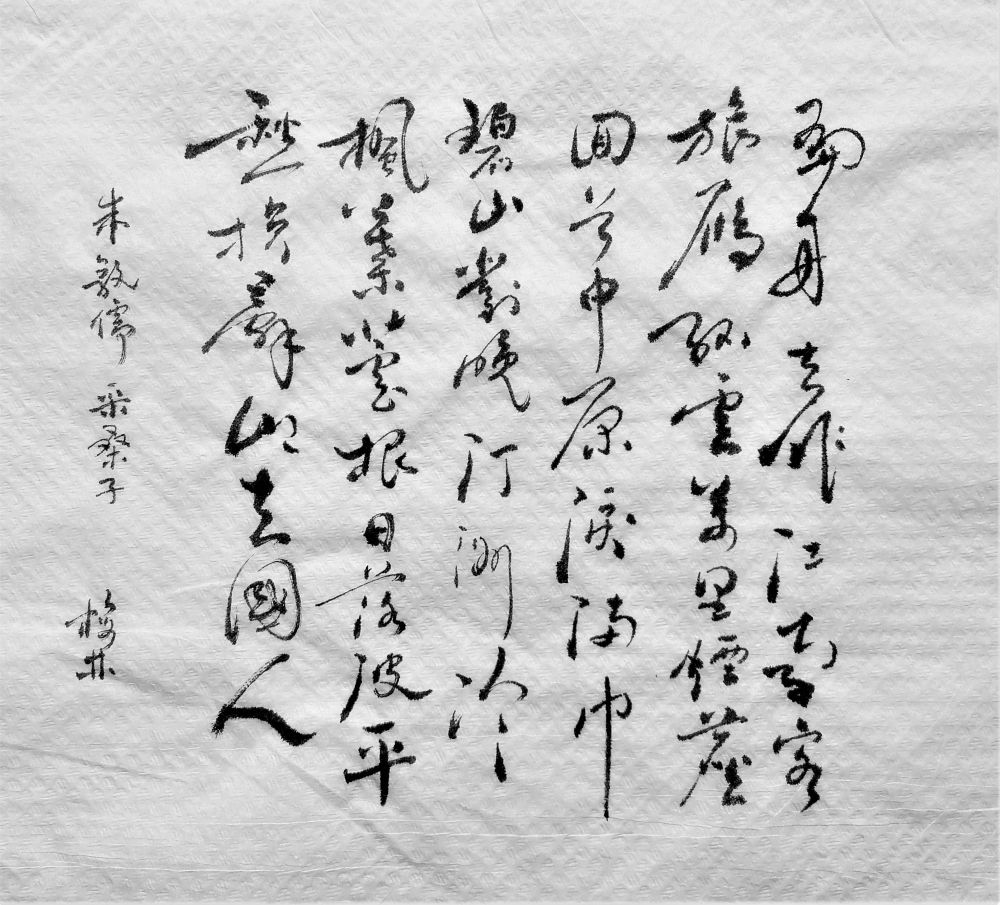 扁舟去作江南客
旅鴈孤雲萬里煙塵
回首中原淚滿巾
碧山對晚汀洲冷
楓葉蘆根日落波平
愁損辭鄉去國人
朱敦儒 采桑子 梅林